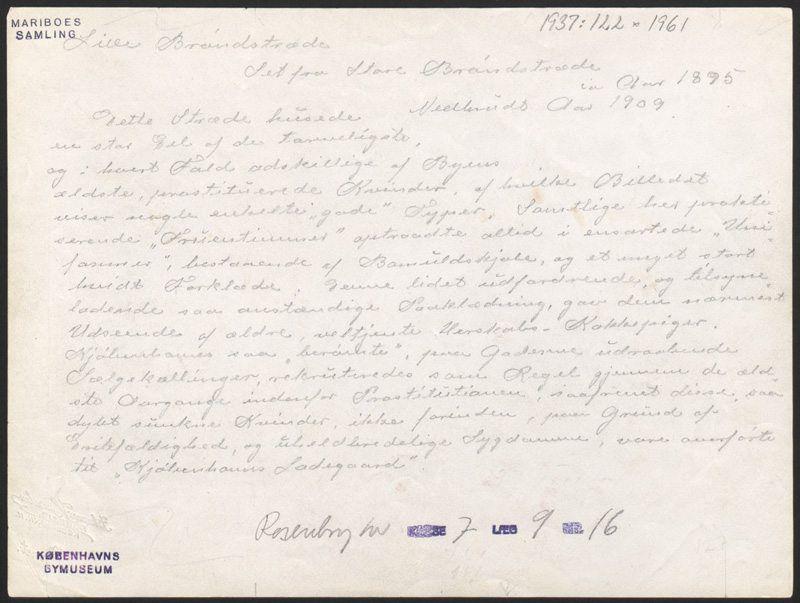 MARIBOES
SAMLING
1937:122 x 1961
Lille Brøndstræde
Set fra Store Brøndstræde
in Aar 1895
Nedbrudt Aar 1909
Dette Stræde husede
en stor Del af de tarveligste,
og i hvert Fald adskillige af Byens
ældste, prostituerede Kvinder, af hvilke Billedet
viser nogle enkelte „gode" Typer. Samtlige her prakti-
serende „Fruentimmer" optraadte altid i ensartede „Uni-
former", bestaaende af Bomuldskjole, og et meget stort
hvidt Forklæde. Denne lidet udfordrende, og tilsyne-
ladende saa anstændige Paaklædning, gav dem nærmest
Udseende af ældre, veltjente Herskabs-Kokkepiger.
Kjøbenhavns saa „berømte", paa Gaderne udraabende
Sælgekællinger, rekruteredes som Regel gjennem de æld-
ste Aargange indenfor Prostitutionen, saafremt disse, saa
dybt sunkne Kvinder, ikke forinden, paa Grund af
Enkfældighed, og uhelbredelige Sygdomme, vare overførte
til „Kjøbenhavns Ladegaard"
Rosenborg kv 7 LÆG 9 16
KØBENHAVNS
BYMUSEUM